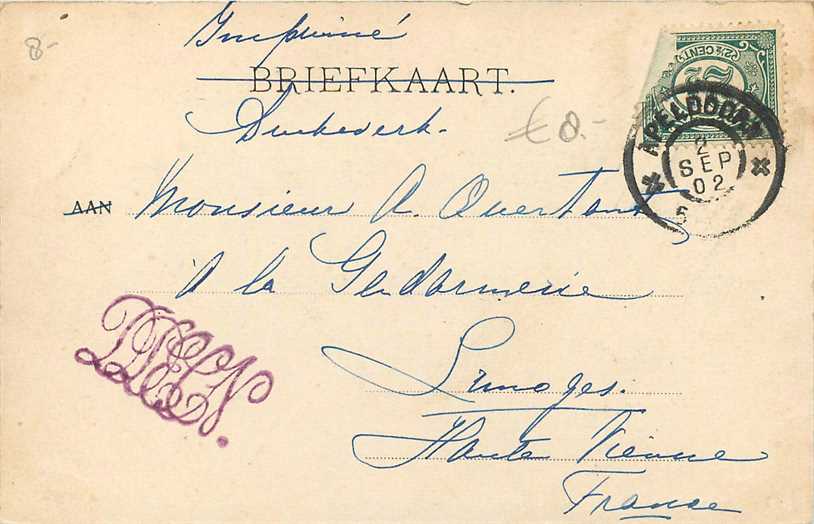 8-
Imprimé
BRIEFKAART.
Drukwerk.
€ 8.-
2½ CENT
APELDOORN
2
SEP
02
AAN Monsieur A. Quertant
à la Gendarmerie
Limoges.
Haute Vienne
France